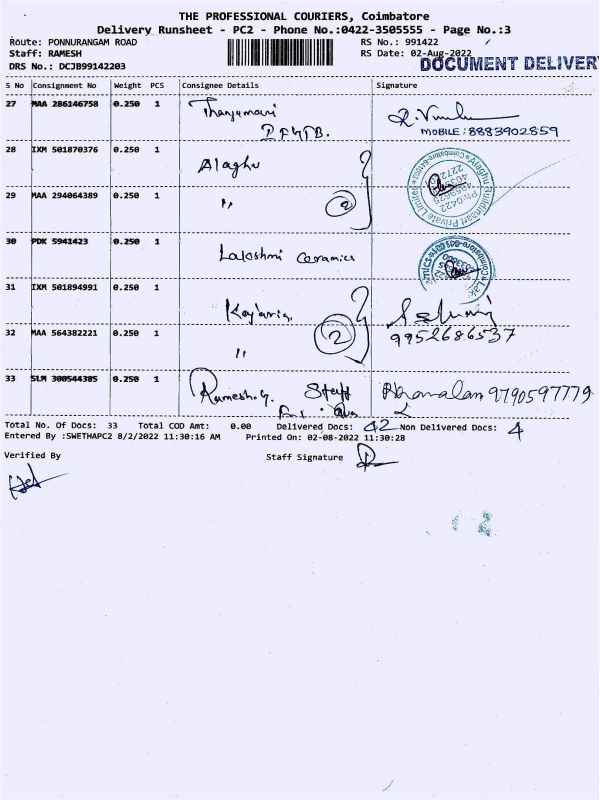 THE PROFESSIONAL COURIERS, Coimbatore
Delivery Runsheet - PC2 - Phone No.:0422-3505555 - Page No.:3
Route: PONNURANGAM ROAD RS No.: 991422
Staff: RAMESH RS Date: 02-Aug-2022
DOCUMENT DELIVER
DRS No.: DCJB99142203
S No Consignment No Weight PCS Consignee Details Signature
27 MAA 286146758 0.250 1
MOBILE: 8883902859
28 IXM 501870376 0.250 1 Alaghu
Alaghu Buildmaart Private Limited
29 MAA 294064389 0.250 1 " 2
30 PDK 5941423 0.250 1 Lakshmi Ceramics
31 IXM 501894991 0.250 1
32 MAA 564382221 0.250 1 " 2 9952686537
33 SLM 300544385 0.250 1 Ramesh.G. Staff 9790597779
Total No. Of Docs: 33 Total COD Amt: 0.00 Delivered Docs: 42 Non Delivered Docs: 4
Entered By :SWETHAPC2 8/2/2022 11:30:16 AM Printed On: 02-08-2022 11:30:28
Verified By Staff Signature